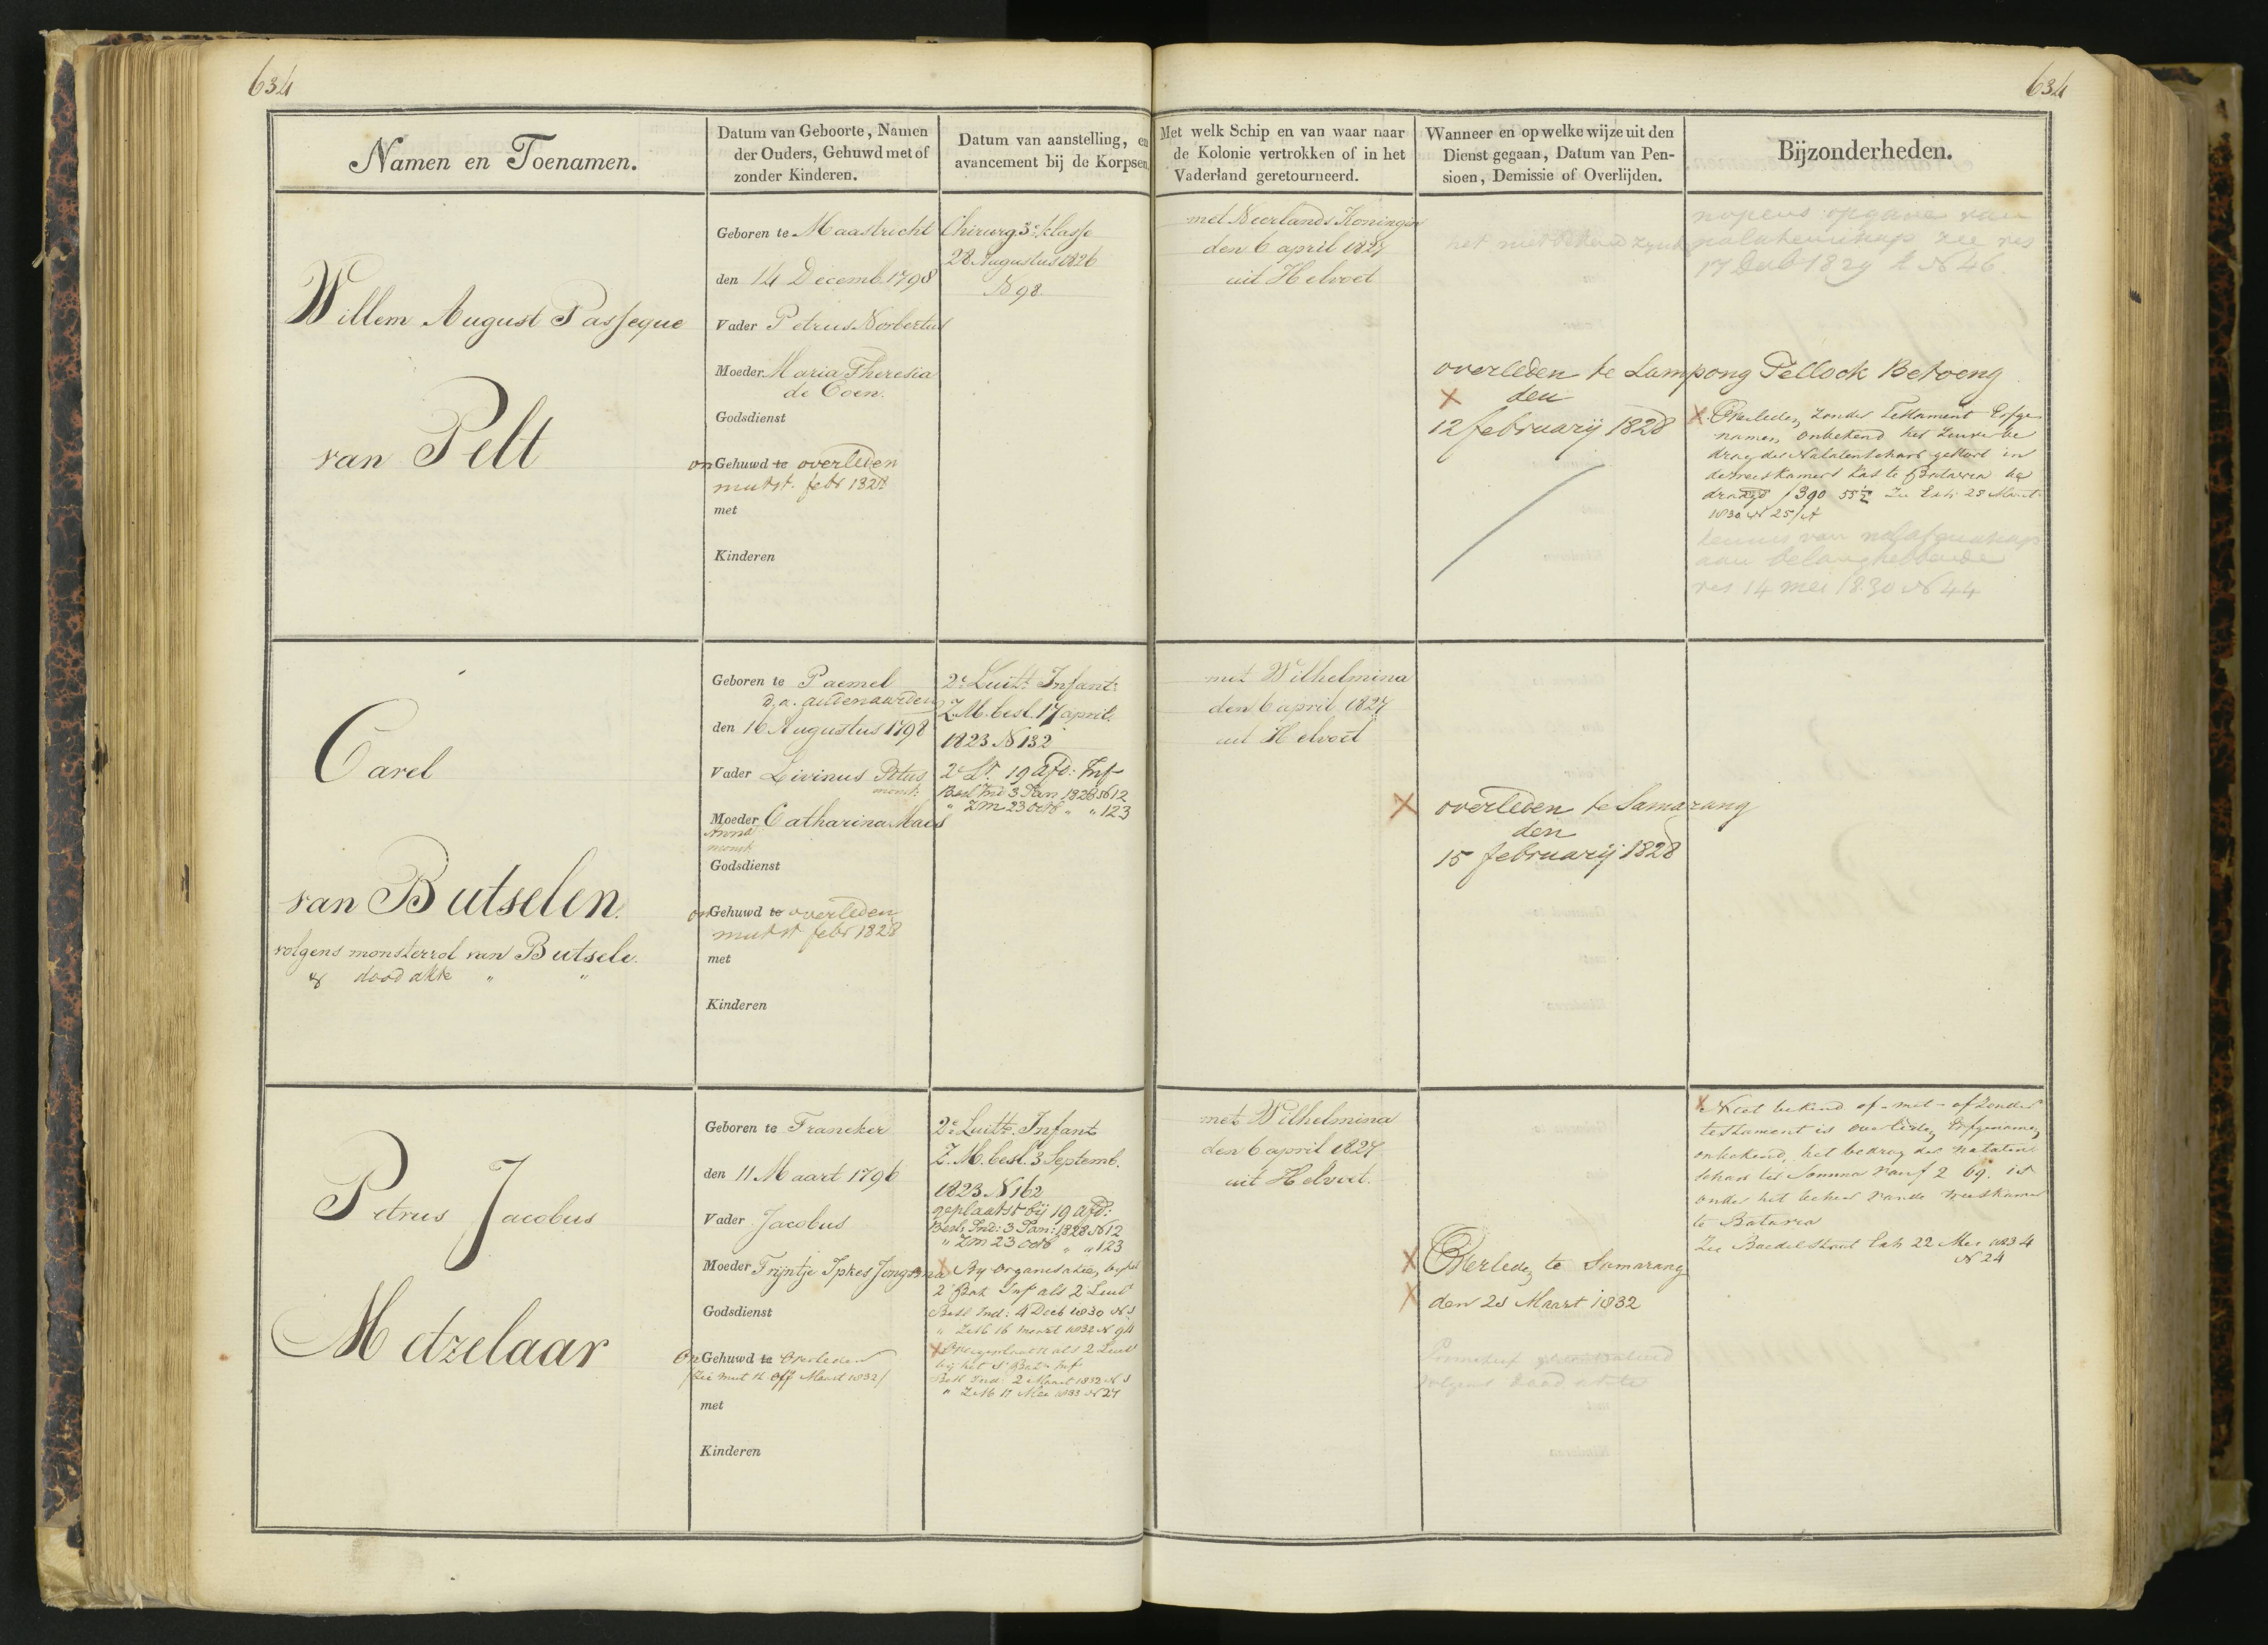 634
634
Namen en Toenamen.
Datum van Geboorte, Namen
der Ouders, Gehuwd met of
zonder Kinderen.
Datum van aanstelling, en
avancement bij de Korpsen.
Met welk Schip en van waar naar
de Kolonie vertrokken of in het
Vaderland geretourneerd.
Wanneer en op welke wijze uit den
Dienst gegaan, Datum van Pen-
sioen, Demissie of Overlijden.
Bijzonderheden.
Willem August Passeque
van Pelt
Geboren te Maastricht
den 14 Decemb. 1798
Vader Petrus Norbertus
Moeder Maria Theresia
de Coen.
Godsdienst
onGehuwd te overleden
mutst. febr 1828
met
Kinderen
Chirurg 3e klasse
28 Augustus 1826
N 98.
met Neerlands Koningin
den 6 april 1827
uit Helvoet
overleden te Lampong Tellock Betoeng
X den
12 februarij 1828
nopens opgave van
nalatenschap zie res
17 Decb 1829 N 46.
X Overleden zonder Testament Erfge
namen onbekend het zuivere be
drag der Nalatenschap gestort in
de weeskamers kas te Batavia be
draagd f 390 55½ Zie Exh 25 Maart
1830 N 25/A
kennis van nalatenschap
aan belanghebbende
res 14 mei 1830 N 44
Carel
van Butselen.
volgens monsterrol van Butsele.
& dood akte " "
Geboren te Paemel
d. a. audenaarden
den 16 Augustus 1798
Vader Livinus Petrus
monst:
Moeder Catharina Maes
Anna
monst:
Godsdienst
onGehuwd te overleden
mutst febr 1828
met
Kinderen
2e Luitt. Infant:
Z. M. besl. 17 april.
1823 N 132
2e Lt. 19 afd: Inf
Besl Ind 3 Jan 1828 N 12
" ZM 23 octb " " 123
met Wilhelmina
den 6 april 1827
uit Helvoet
X overleden te Samarang
den
15 februarij 1828
Petrus Jacobus
Metzelaar
Geboren te Franeker
den 11 Maart 1796
Vader Jacobus
Moeder Trijntje Ipkes Jongsma
Godsdienst
OnGehuwd te Overleden
/Zie mut st off Maart 1832/
met
Kinderen
2e Luitt. Infant
Z. M. besl. 3 Septemb.
1823 N 162
geplaatst bij 19 afd:
Besl. Ind: 3 Jan: 1828 N 12
" ZM 23 octb " " 123
X By organisatie, by het
2e Bat Inf als 2e Luit
Besl Ind: 4 Decb 1830 N 1
" ZM 16 maart 1832 N 94
X Overgeplaatst als 2 Luit
by het 1e Bat Inf
Besl Ind: 2 Maart 1832 N 1
" ZM 17 Mei 1833 N 27
met Wilhelmina
den 6 april 1827
uit Helvoet.
X Overleden te Samarang
X den 23 Maart 1832
volgens dood akte
X Niet bekend of - met - of zonder
testament is overleden, Erfgenamen
onbekend, het bedrag der nalaten
schap ter Somma van f 2 69. is
onder het beheer van de weeskamer
te Batavia
Zie Boedelstaat Exh 22 Mei 1834
N 24